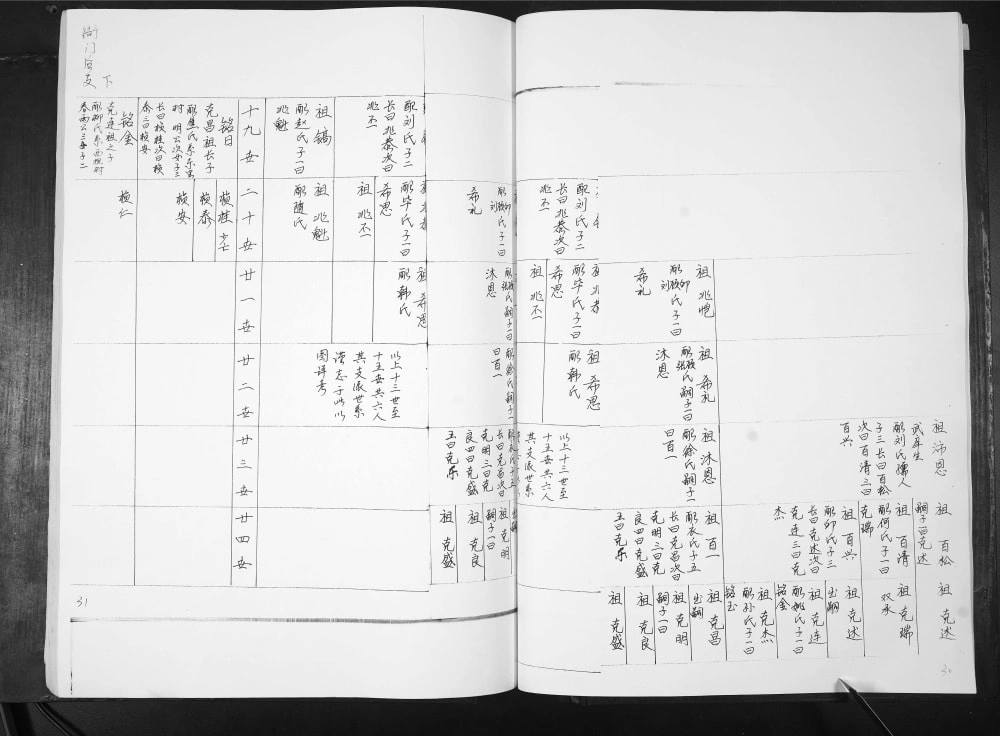 祖 沛恩
武庠生
配刘氏孺人
子三长曰百松
次曰百清三曰
百兴
祖 百松
嗣子一曰克述
祖 百清
配何氏子一曰
克瑞
祖 百兴
配印氏子三
长曰克述次曰
克连三曰克
杰
祖 克述
祖 克瑞
双承
祖 克述
出嗣
祖 克连
配姚氏子一曰
铭金
祖 克杰
配孙氏子一曰
铭玉
祖 克昌
出嗣
祖 克明
嗣子一曰
祖 克良
祖 克盛
祖 兆恺
刘氏子一曰
希礼
祖 希礼
氏嗣子一曰
沐恩
祖 沐恩
配徐氏嗣子一
曰百一
祖 百一
配衣氏子五
长曰克昌次曰
克明三曰克
良四曰克盛
五曰克乐
配刘氏子二
长曰兆恭次曰
兆丕
配毕氏子一曰
希思
祖 兆丕
祖 希思
配韩氏
以上十三世至
十五世共六人
其支派世系
30
配刘氏子一曰
希礼
氏嗣子一曰
沐恩
配徐氏嗣子一
曰百一
配衣氏子五
长曰克昌次曰
克明三曰克
良四曰克盛
五曰克乐
出嗣
祖 克明
嗣子一曰
祖 克良
祖 克盛
配刘氏子二
长曰兆恭次曰
兆丕
祖 镐
配赵氏子一曰
兆魁
配毕氏子一曰
希思
祖 兆丕
祖 兆魁
配随氏
祖 希思
配韩氏
以上十三世至
十五世共六人
其支派世系
谱志于此以
图详考
十九世
二十世
廿一世
廿二世
廿三世
廿四世
铭日
克昌祖长子
村 明公次女子三
长曰桢桂次曰桢
泰三曰桢安
铭金
克连祖之子
配柳氏系西 村
春 公三女子二
桢桂 少亡
桢泰
桢安
桢仁
衙门后支
下
31